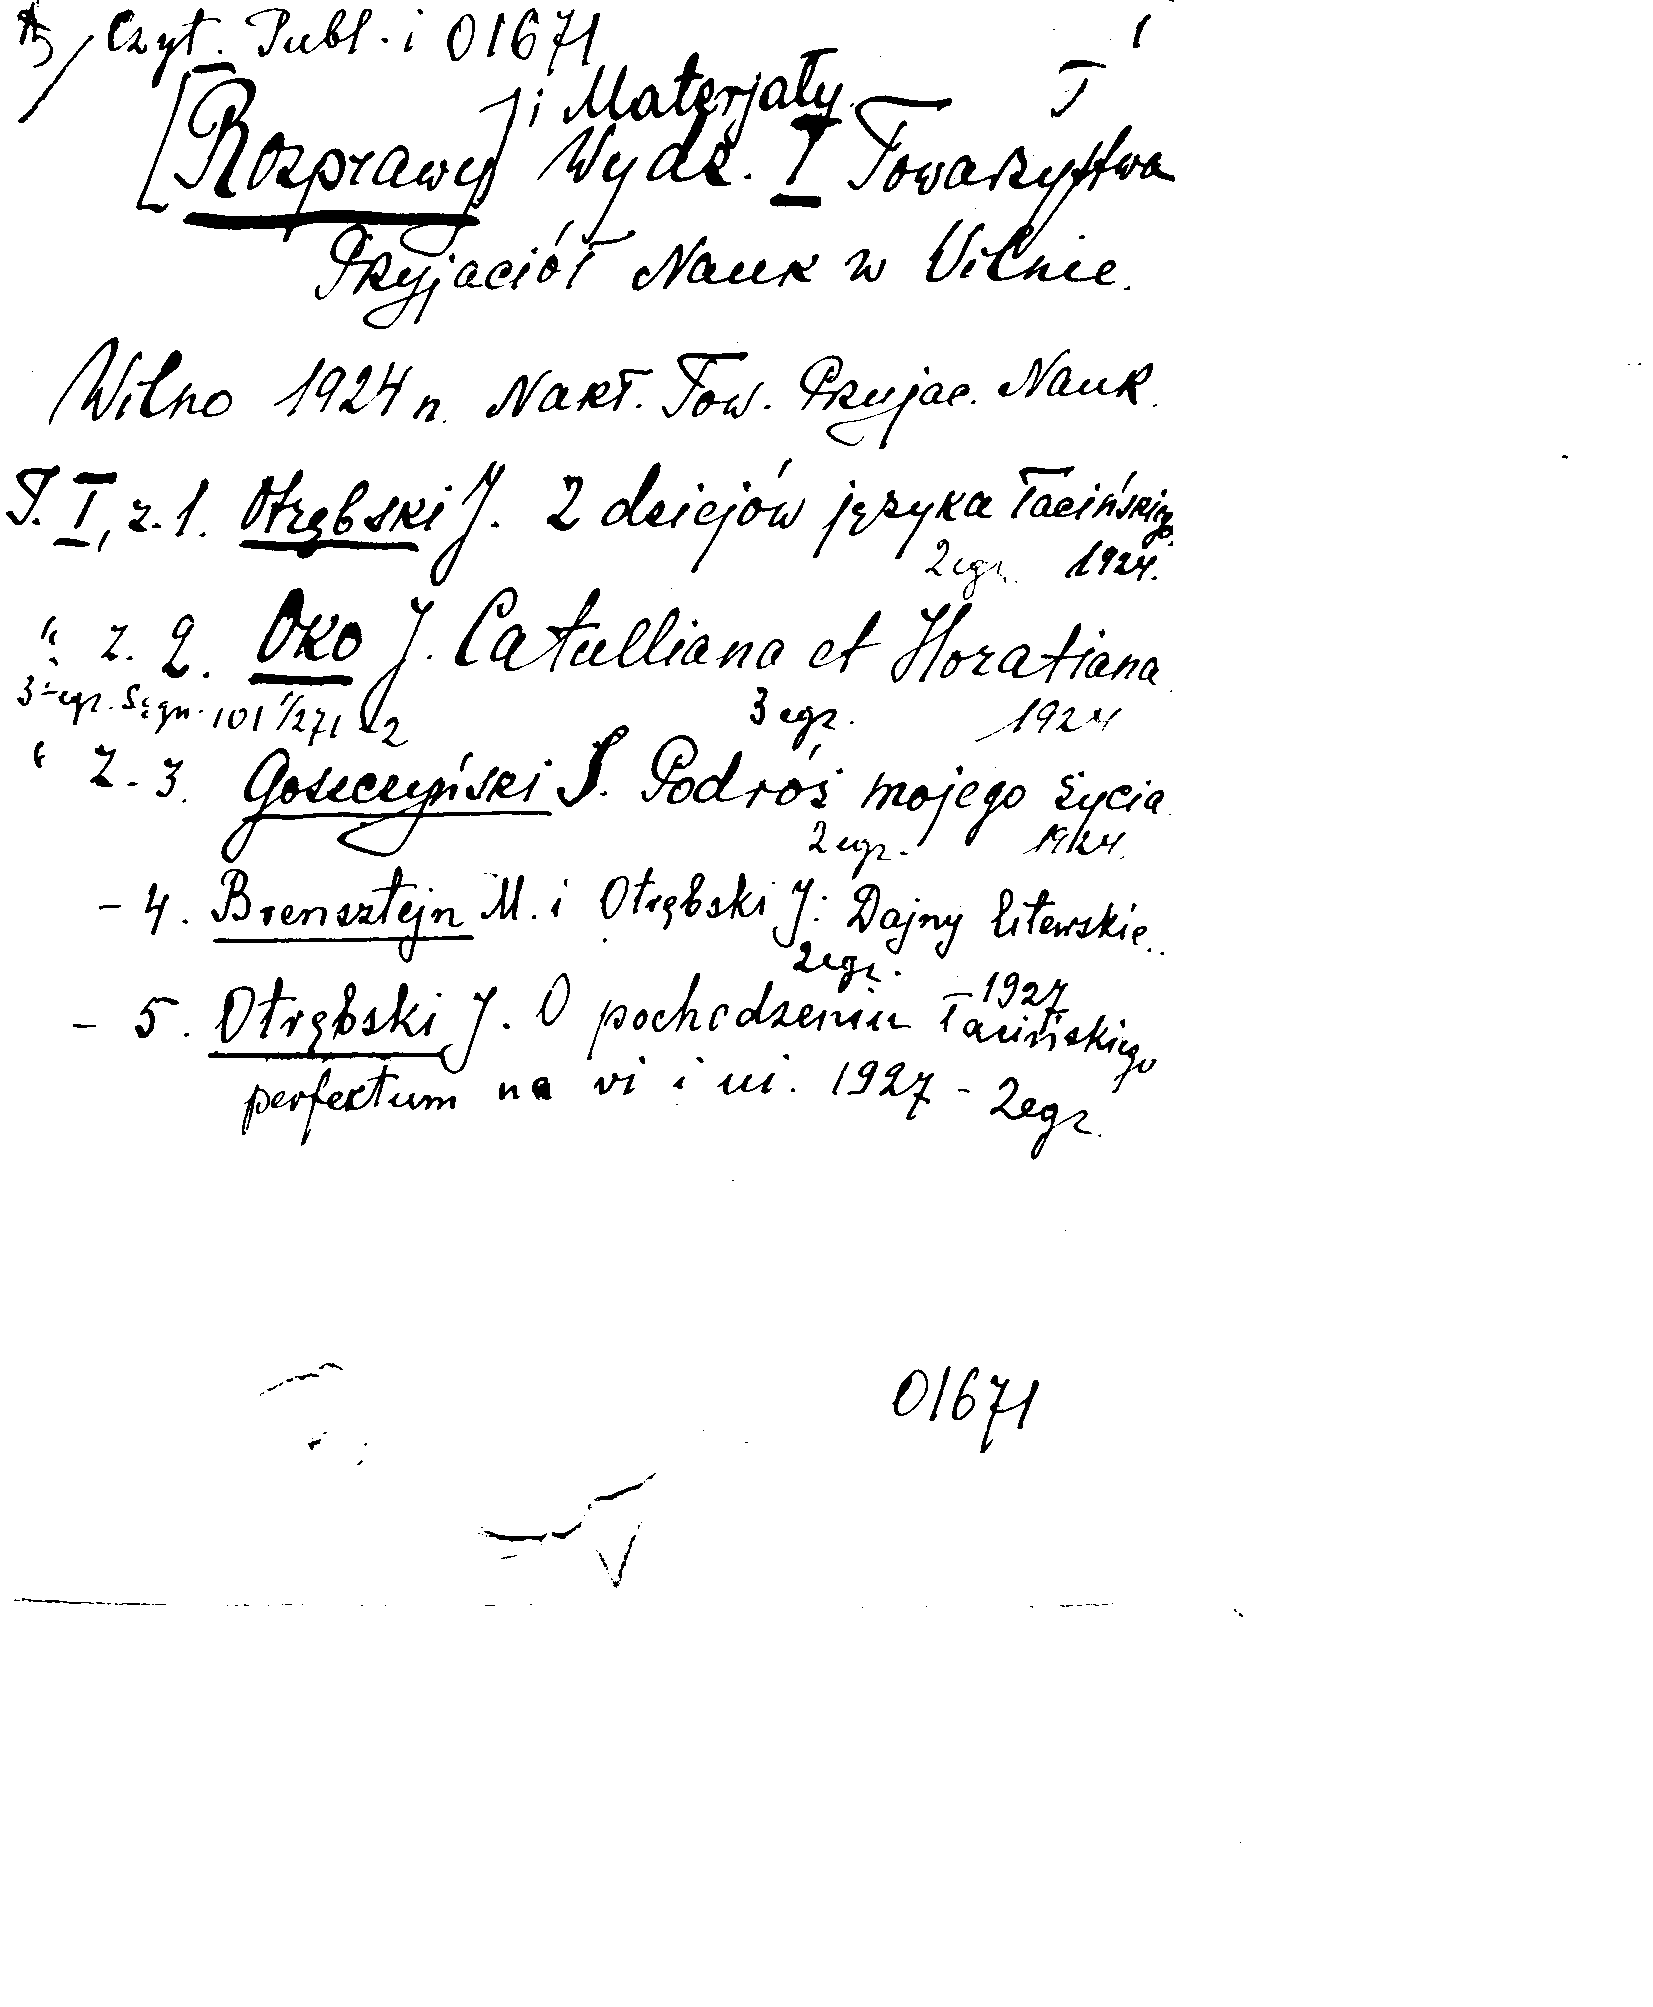 Czyt. Publ. i 01671
I
[Rozprawy] i Materjały
Wydz. I Towarzystwa
Przyjaciół Nauk w Wilnie.
Wilno 1924 n. Nakł. Tow. Przyjac. Nauk.
T. I, z. 1. Otrębski J. Z dziejów języka łacińskiego.
2 egz. 1924.
" z. 2. Oko J. Catulliana et Horatiana
3 egz. Sygn. 101 271 2 3 egz. 1924
" z. 3. Goszczyński S. Podróż mojego życia
2 egz. 1924.
- 4. Brensztejn M. i Otrębski J: Dajny litewskie.
2 egz. - 1927
- 5. Otrębski J. O pochodzeniu łacińskiego
perfektum na vi i ui. 1927 - 2 egz.
01671